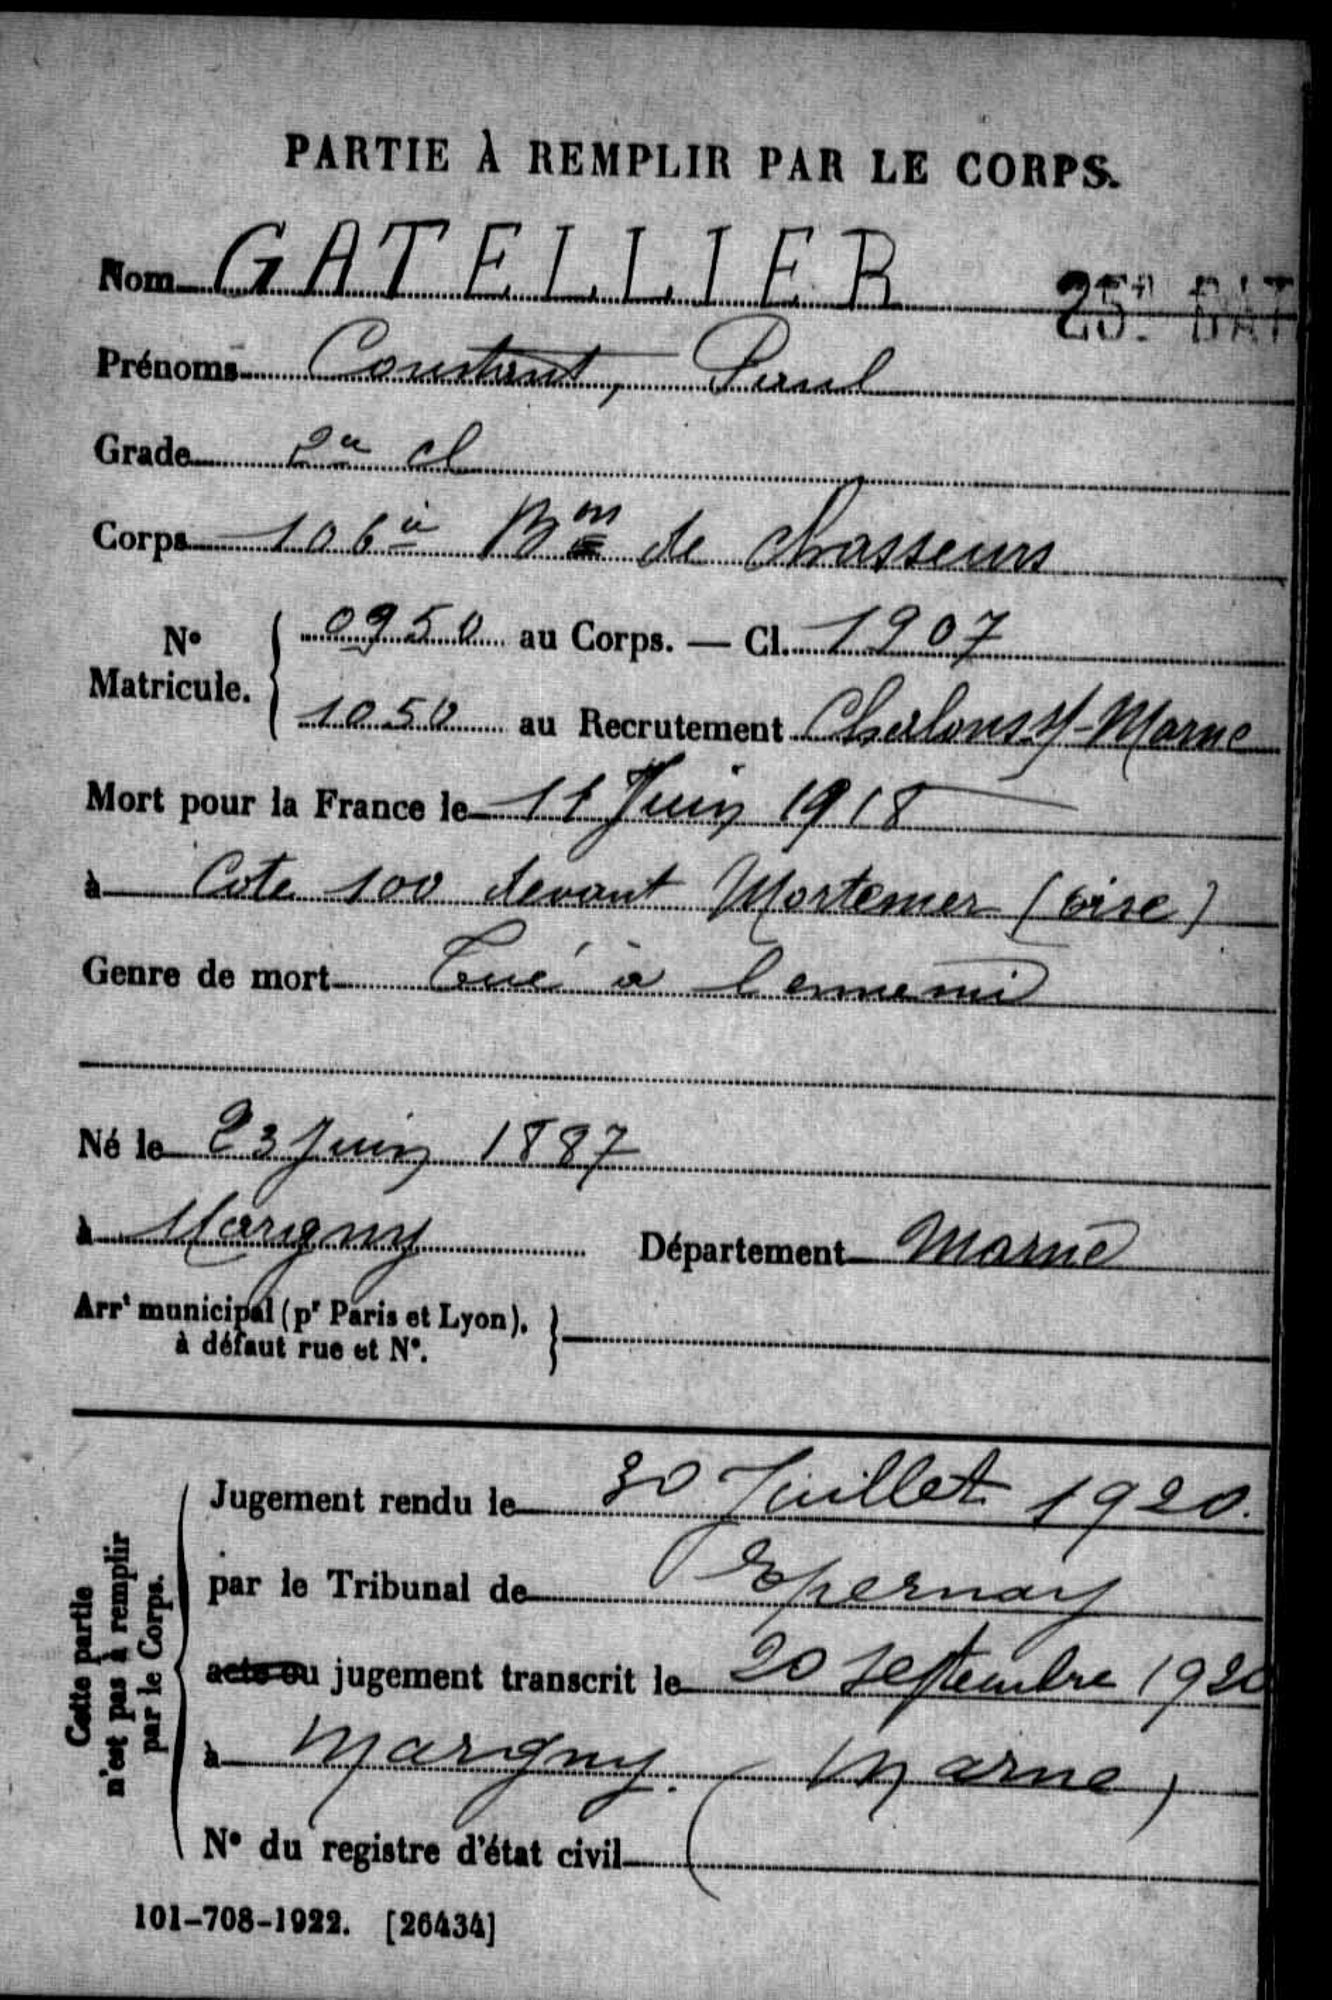 PARTIE À REMPLIR PAR LE CORPS.
Nom GATELLIER 25e BAT
Prénoms Constant, Paul
Grade 2e cl
Corps 106e Bon de chasseurs
No Matricule. { 0950 au Corps. — Cl. 1907
1050 au Recrutement Chalons s/-Marne
Mort pour la France le 11 Juin 1918
à Cote 100 devant Mortemer (oise)
Genre de mort Tué à l'ennemi
Né le 23 Juin 1887
à Marigny Département Marne
Arrt municipal (pr Paris et Lyon), }
à défaut rue et No.
Cette partie n'est pas à remplir par le Corps.
Jugement rendu le 30 Juillet 1920.
par le Tribunal de Epernay
acte ou jugement transcrit le 20 septembre 1920
à Margny. (Marne)
No du registre d'état civil
101-708-1922. [26434]